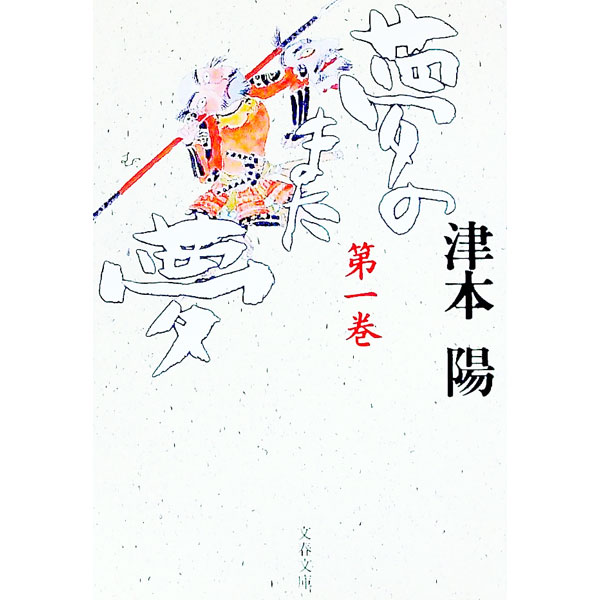 夢の
また
夢
津本 陽
第一巻
文春文庫